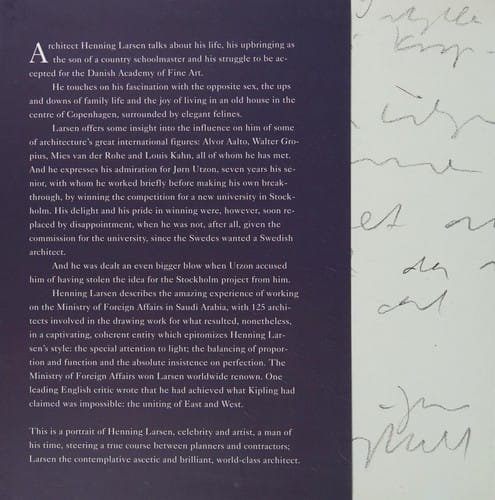 Architect Henning Larsen talks about his life, his upbringing as
the son of a country schoolmaster and his struggle to be ac-
cepted for the Danish Academy of Fine Art.
He touches on his fascination with the opposite sex, the ups
and downs of family life and the joy of living in an old house in the
centre of Copenhagen, surrounded by elegant felines.
Larsen offers some insight into the influence on him of some
of architecture's great international figures: Alvor Aalto, Walter Gro-
pius, Mies van der Rohe and Louis Kahn, all of whom he has met.
And he expresses his admiration for Jørn Utzon, seven years his se-
nior, with whom he worked briefly before making his own break-
through, by winning the competition for a new university in Stock-
holm. His delight and his pride in winning were, however, soon re-
placed by disappointment, when he was not, after all, given the
commission for the university, since the Swedes wanted a Swedish
architect.
And he was dealt an even bigger blow when Utzon accused
him of having stolen the idea for the Stockholm project from him.
Henning Larsen describes the amazing experience of working
on the Ministry of Foreign Affairs in Saudi Arabia, with 125 archi-
tects involved in the drawing work for what resulted, nonetheless,
in a captivating, coherent entity which epitomizes Henning Lar-
sen's style: the special attention to light; the balancing of propor-
tion and function and the absolute insistence on perfection. The
Ministry of Foreign Affairs won Larsen worldwide renown. One
leading English critic wrote that he had achieved what Kipling had
claimed was impossible: the uniting of East and West.
This is a portrait of Henning Larsen, celebrity and artist, a man of
his time, steering a true course between planners and contractors;
Larsen the contemplative ascetic and brilliant, world-class architect.